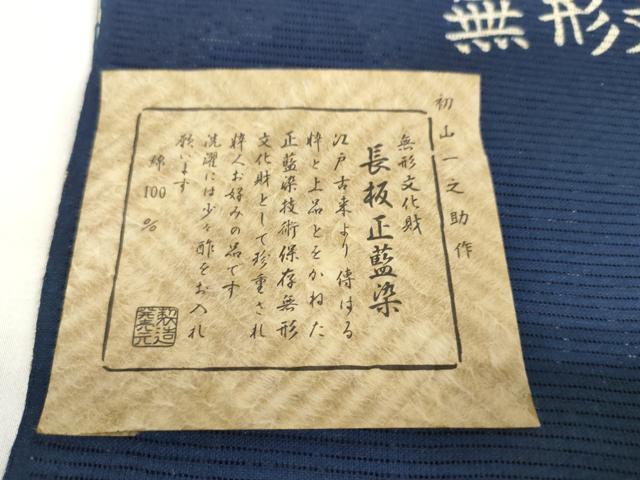 無形文
初山一之助作
無形文化財
長板正藍染
江戸古来より傳はる
粋と上品とをかねた
正藍染技術保存無形
文化財として珍重され
粋人お好みの品です
洗濯には少々酢をお入れ
願います
綿100%
製造
発売元